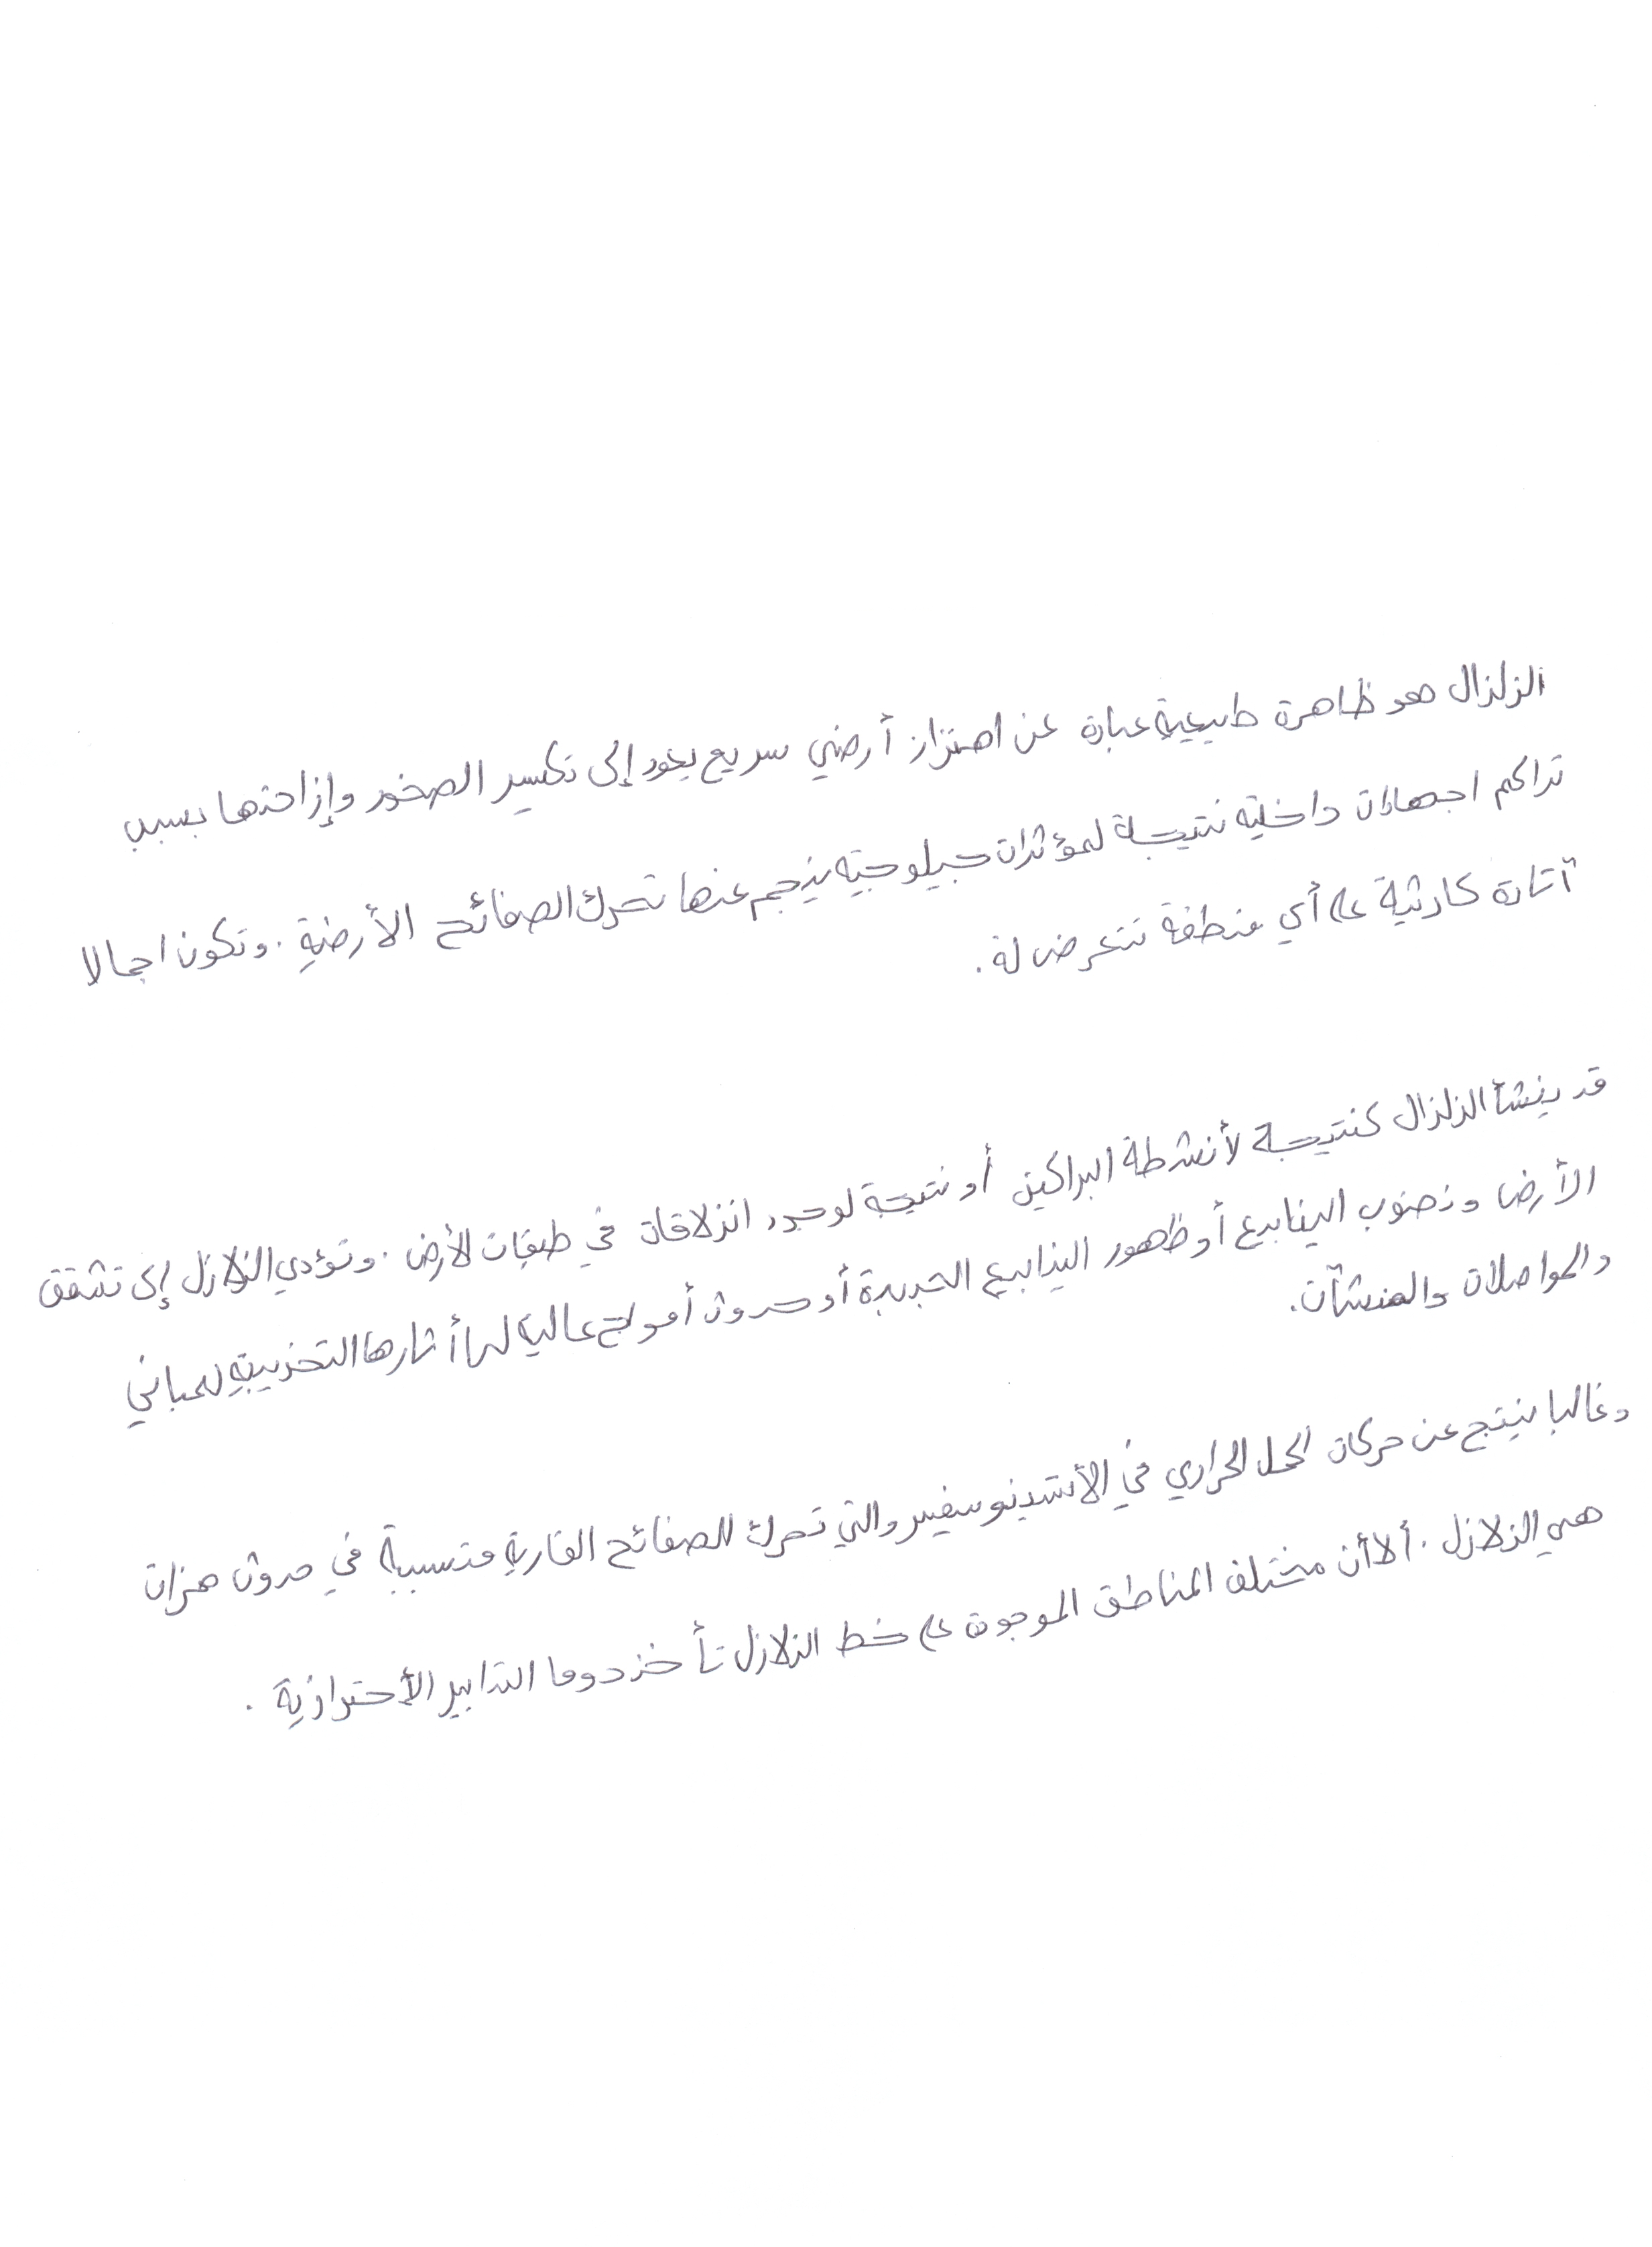 الزلزال هو ظاهرة طبيعية عبارة عن اهتزاز أرضي سريع يعود إلى تكسير الصخور وإزاحتها بسبب
تراكم اجهادات داخلية نتيجة لمؤثرات جيلوجية ينجم عنها تحرك الصفائح الأرضية. وتكون اجمالا
آثارة كارثية على أي منطقة تتعرض لة.
قد ينشأ الزلزال كنتيجة لأنشطة البراكين أو نتيجة لوجود انزلاقات في طبقات الأرض. وتؤدي الزلازل إلى تشقق
الأرض ونضوب الينابيع أو ظهور الينابيع الجديدة أو حدوث أمواج عالية لها أثارها التخريبية للمباني
والمواصلات والمنشآت.
وغالبا ينتج عن حركات الحمل الحراري في الأتشينوسفير والتي تحرك الصفائح القارية متسببة في حدوث هزات
هي الزلازل. ألا أن مختلف المناطق الموجودة على خط الزلازل تأخذ دوما التدابير الأحترازية.